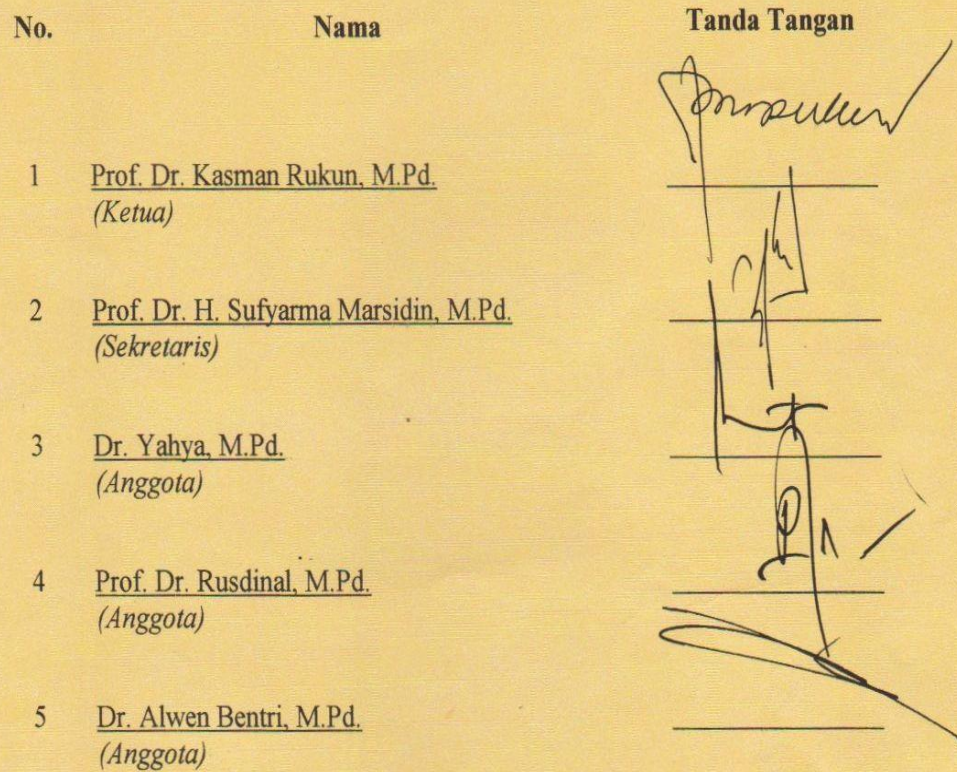 No. Nama Tanda Tangan
1 Prof. Dr. Kasman Rukun, M.Pd.
(Ketua)
2 Prof. Dr. H. Sufyarma Marsidin, M.Pd.
(Sekretaris)
3 Dr. Yahya, M.Pd.
(Anggota)
4 Prof. Dr. Rusdinal, M.Pd.
(Anggota)
5 Dr. Alwen Bentri, M.Pd.
(Anggota)